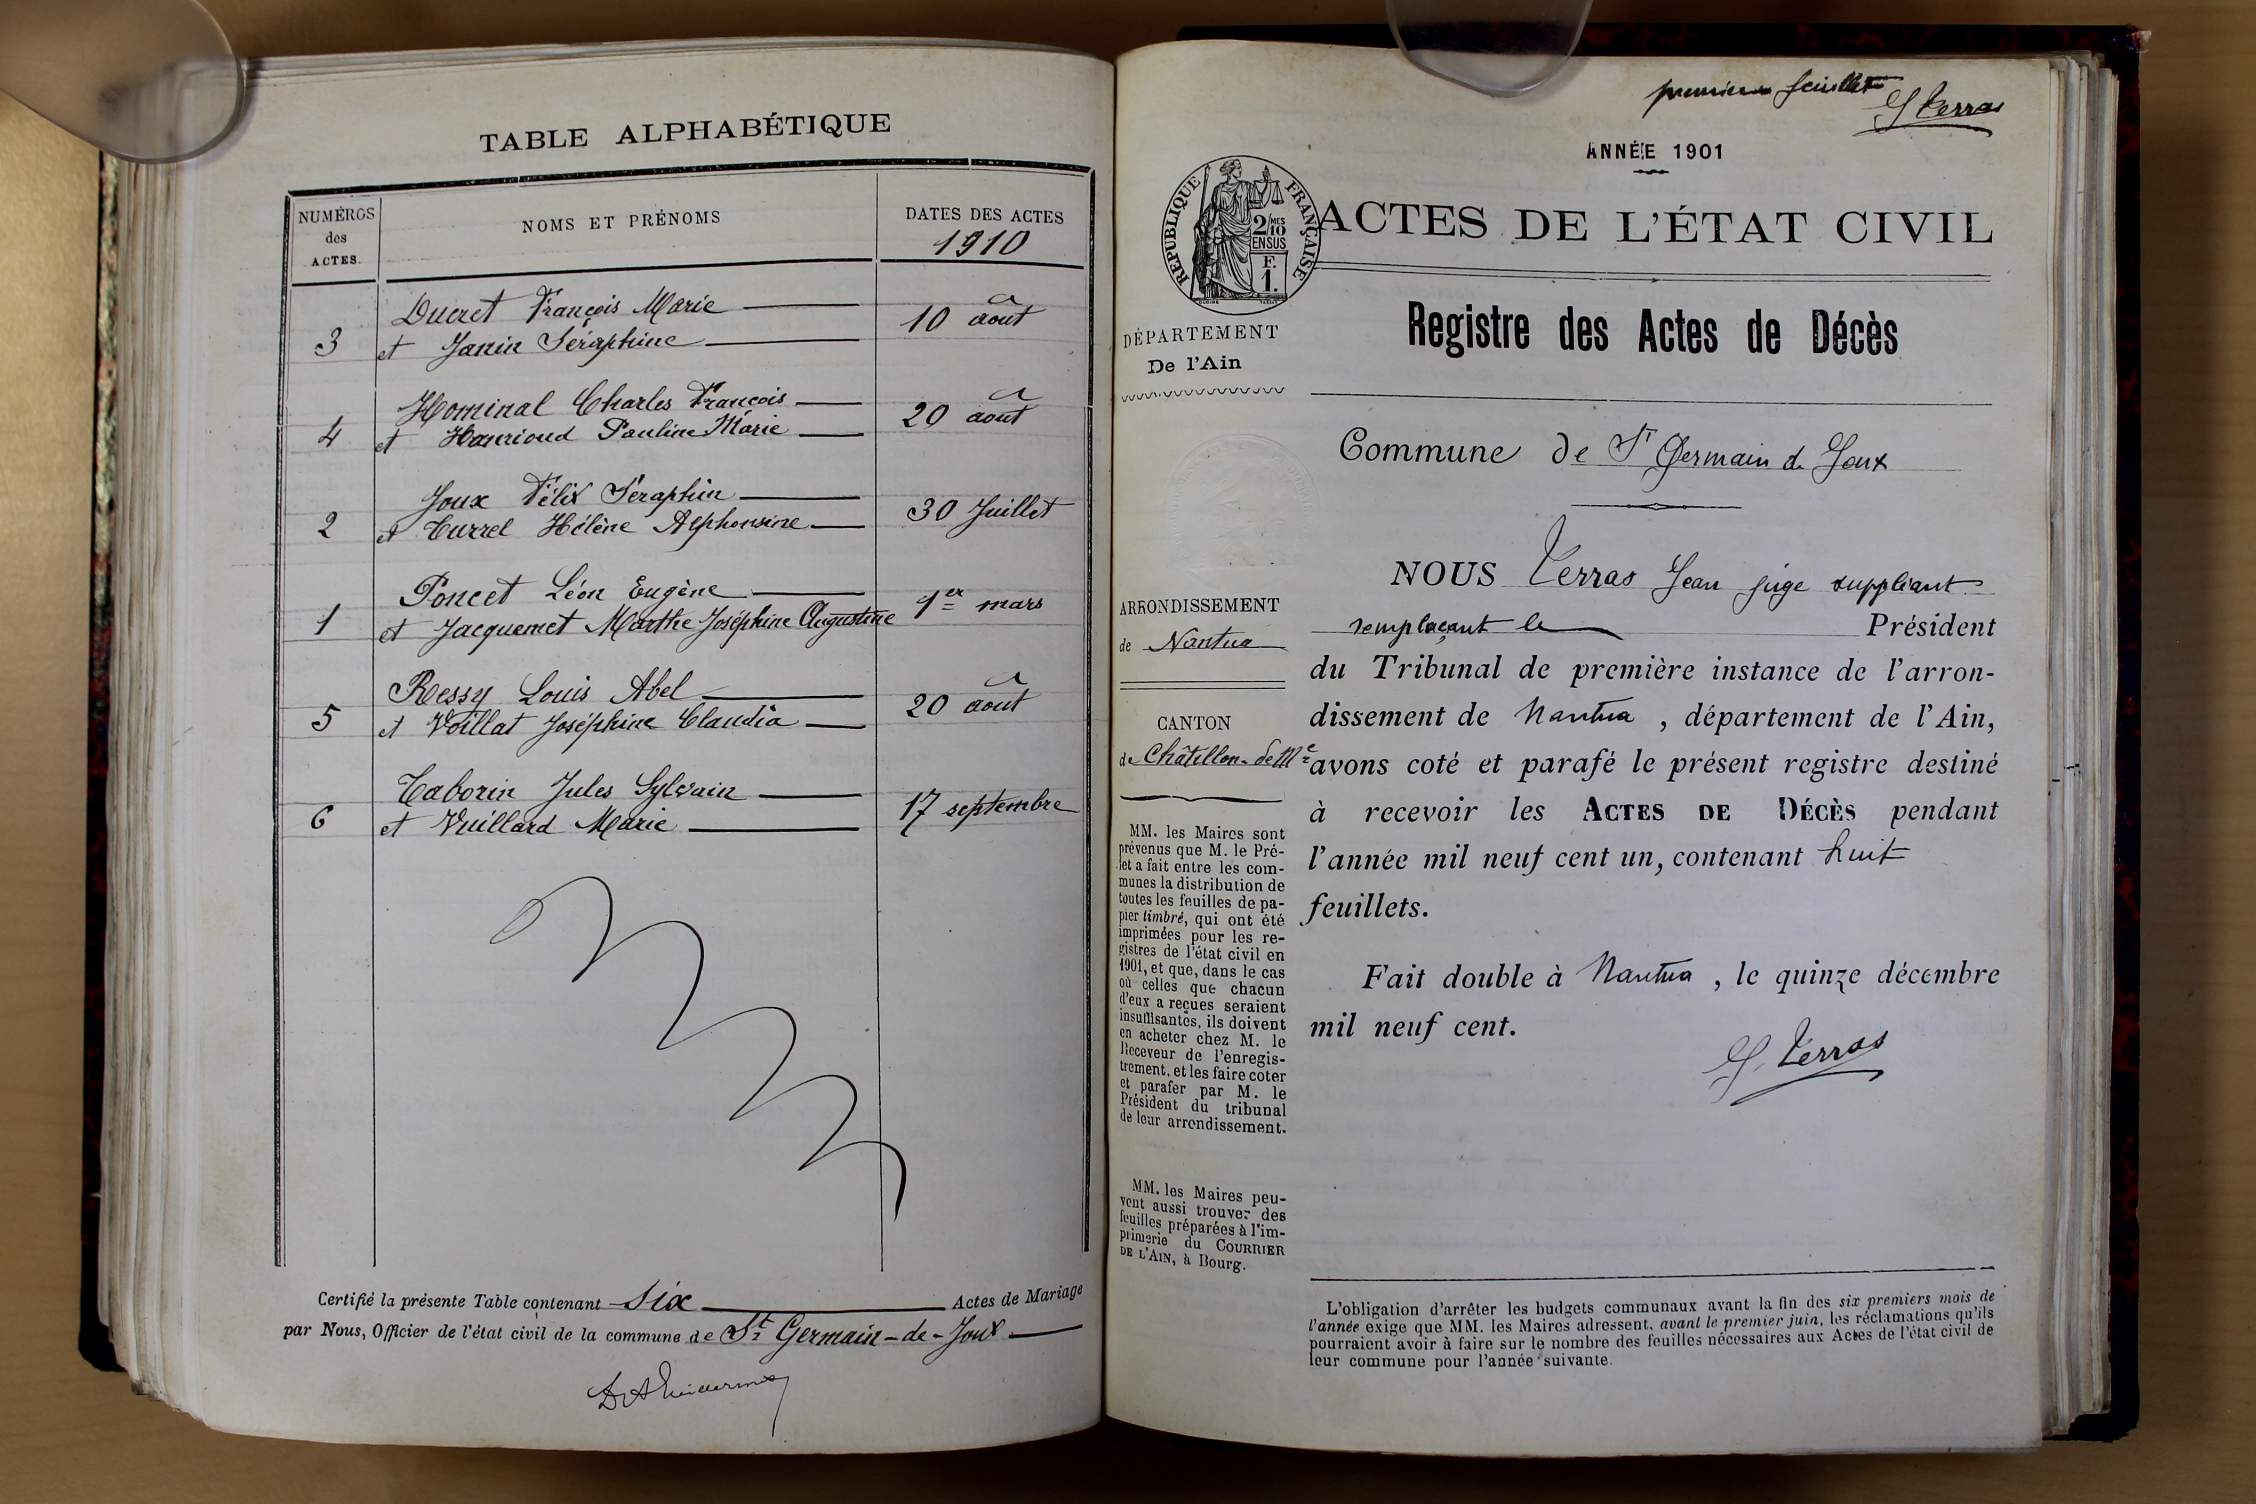 TABLE ALPHABÉTIQUE
NUMÉROS des ACTES.
NOMS ET PRÉNOMS
DATES DES ACTES
1910
3
Ducret François Marie
et Janin Séraphine
10 août
4
Hominal Charles François
et Hanrioud Pauline Marie
20 août
2
Joux Félix Séraphin
et Turrel Hélène Alphonsine
30 Juillet
1
Poncet Léon Eugène
et Jacquemet Marthe Joséphine Augustine
1er mars
5
Ressy Louis Abel
et Voillat Joséphine Claudia
20 août
6
Taborin Jules Sylvain
et Vuillard Marie
17 septembre
Certifié la présente Table contenant six Actes de Mariage
par Nous, Officier de l'état civil de la commune de St Germain-de-Joux
premier feuillet
J Verras
ANNÉE 1901
RÉPUBLIQUE FRANÇAISE
2/MES
10
EN SUS
F.
1.
ACTES DE L'ÉTAT CIVIL
Registre des Actes de Décès
DÉPARTEMENT
De l'Ain
Commune de St Germain de Joux
NOUS Verras Jean juge suppléant
remplaçant le Président
du Tribunal de première instance de l'arron-
dissement de Nantua, département de l'Ain,
avons coté et parafé le présent registre destiné
à recevoir les ACTES DE DÉCÈS pendant
l'année mil neuf cent un, contenant huit
feuillets.
Fait double à Nantua, le quinze décembre
mil neuf cent.
J. Verras
ARRONDISSEMENT
de Nantua
CANTON
de Châtillon-de-Mce
MM. les Maires sont
prévenus que M. le Pré-
fet a fait entre les com-
munes la distribution de
toutes les feuilles de pa-
pier timbré, qui ont été
imprimées pour les re-
gistres de l'état civil en
1901, et que, dans le cas
où celles que chacun
d'eux a reçues seraient
insuffisantes, ils doivent
en acheter chez M. le
Receveur de l'enregis-
trement, et les faire coter
et parafer par M. le
Président du tribunal
de leur arrondissement.
MM. les Maires peu-
vent aussi trouver des
feuilles préparées à l'im-
primerie du COURRIER
DE L'AIN, à Bourg.
L'obligation d'arrêter les budgets communaux avant la fin des six premiers mois de
l'année exige que MM. les Maires adressent, avant le premier juin, les réclamations qu'ils
pourraient avoir à faire sur le nombre des feuilles nécessaires aux Actes de l'état civil de
leur commune pour l'année suivante.